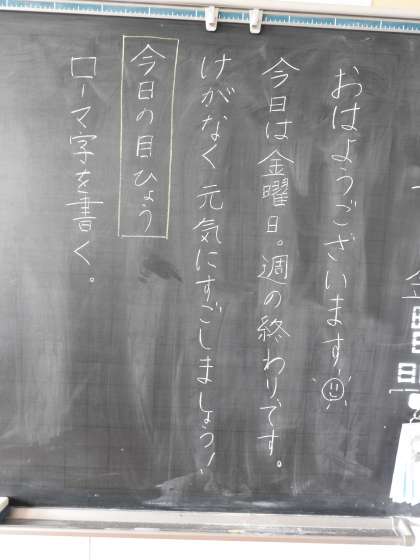 おはようございます
今日は金曜日。週の終わりです。
けがなく元気にすごしましょう!
今日の目ひょう
ローマ字を書く。
金曜日